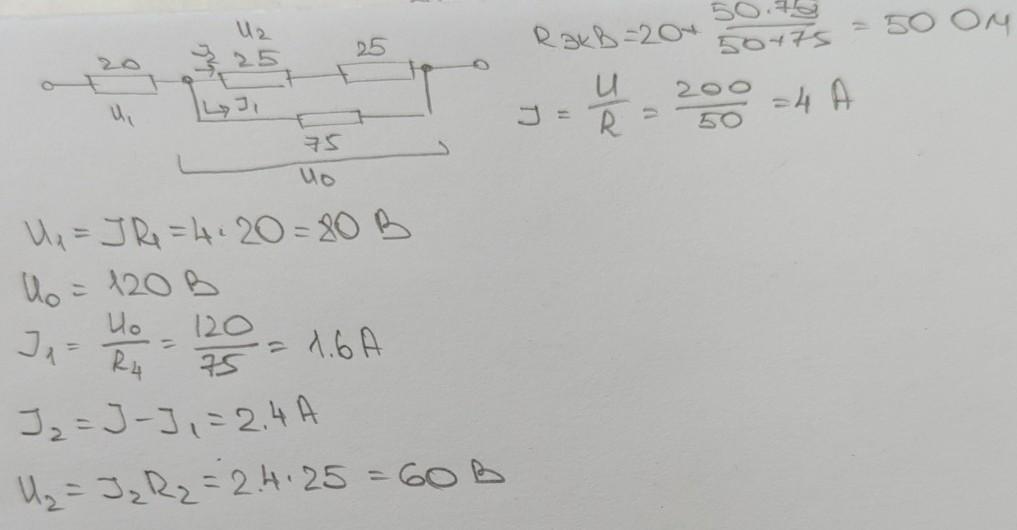 20
U₂
25
25
U₁
J₁
75
U₀
Rэкв=20+ 50·75/50+75 = 50 Ом
J = U/R = 200/50 = 4 А
U₁ = JR₁ = 4·20 = 80 В
U₀ = 120 В
J₁ = U₀/R₄ = 120/75 = 1.6 А
J₂ = J-J₁ = 2.4 А
U₂ = J₂R₂ = 2.4·25 = 60 В